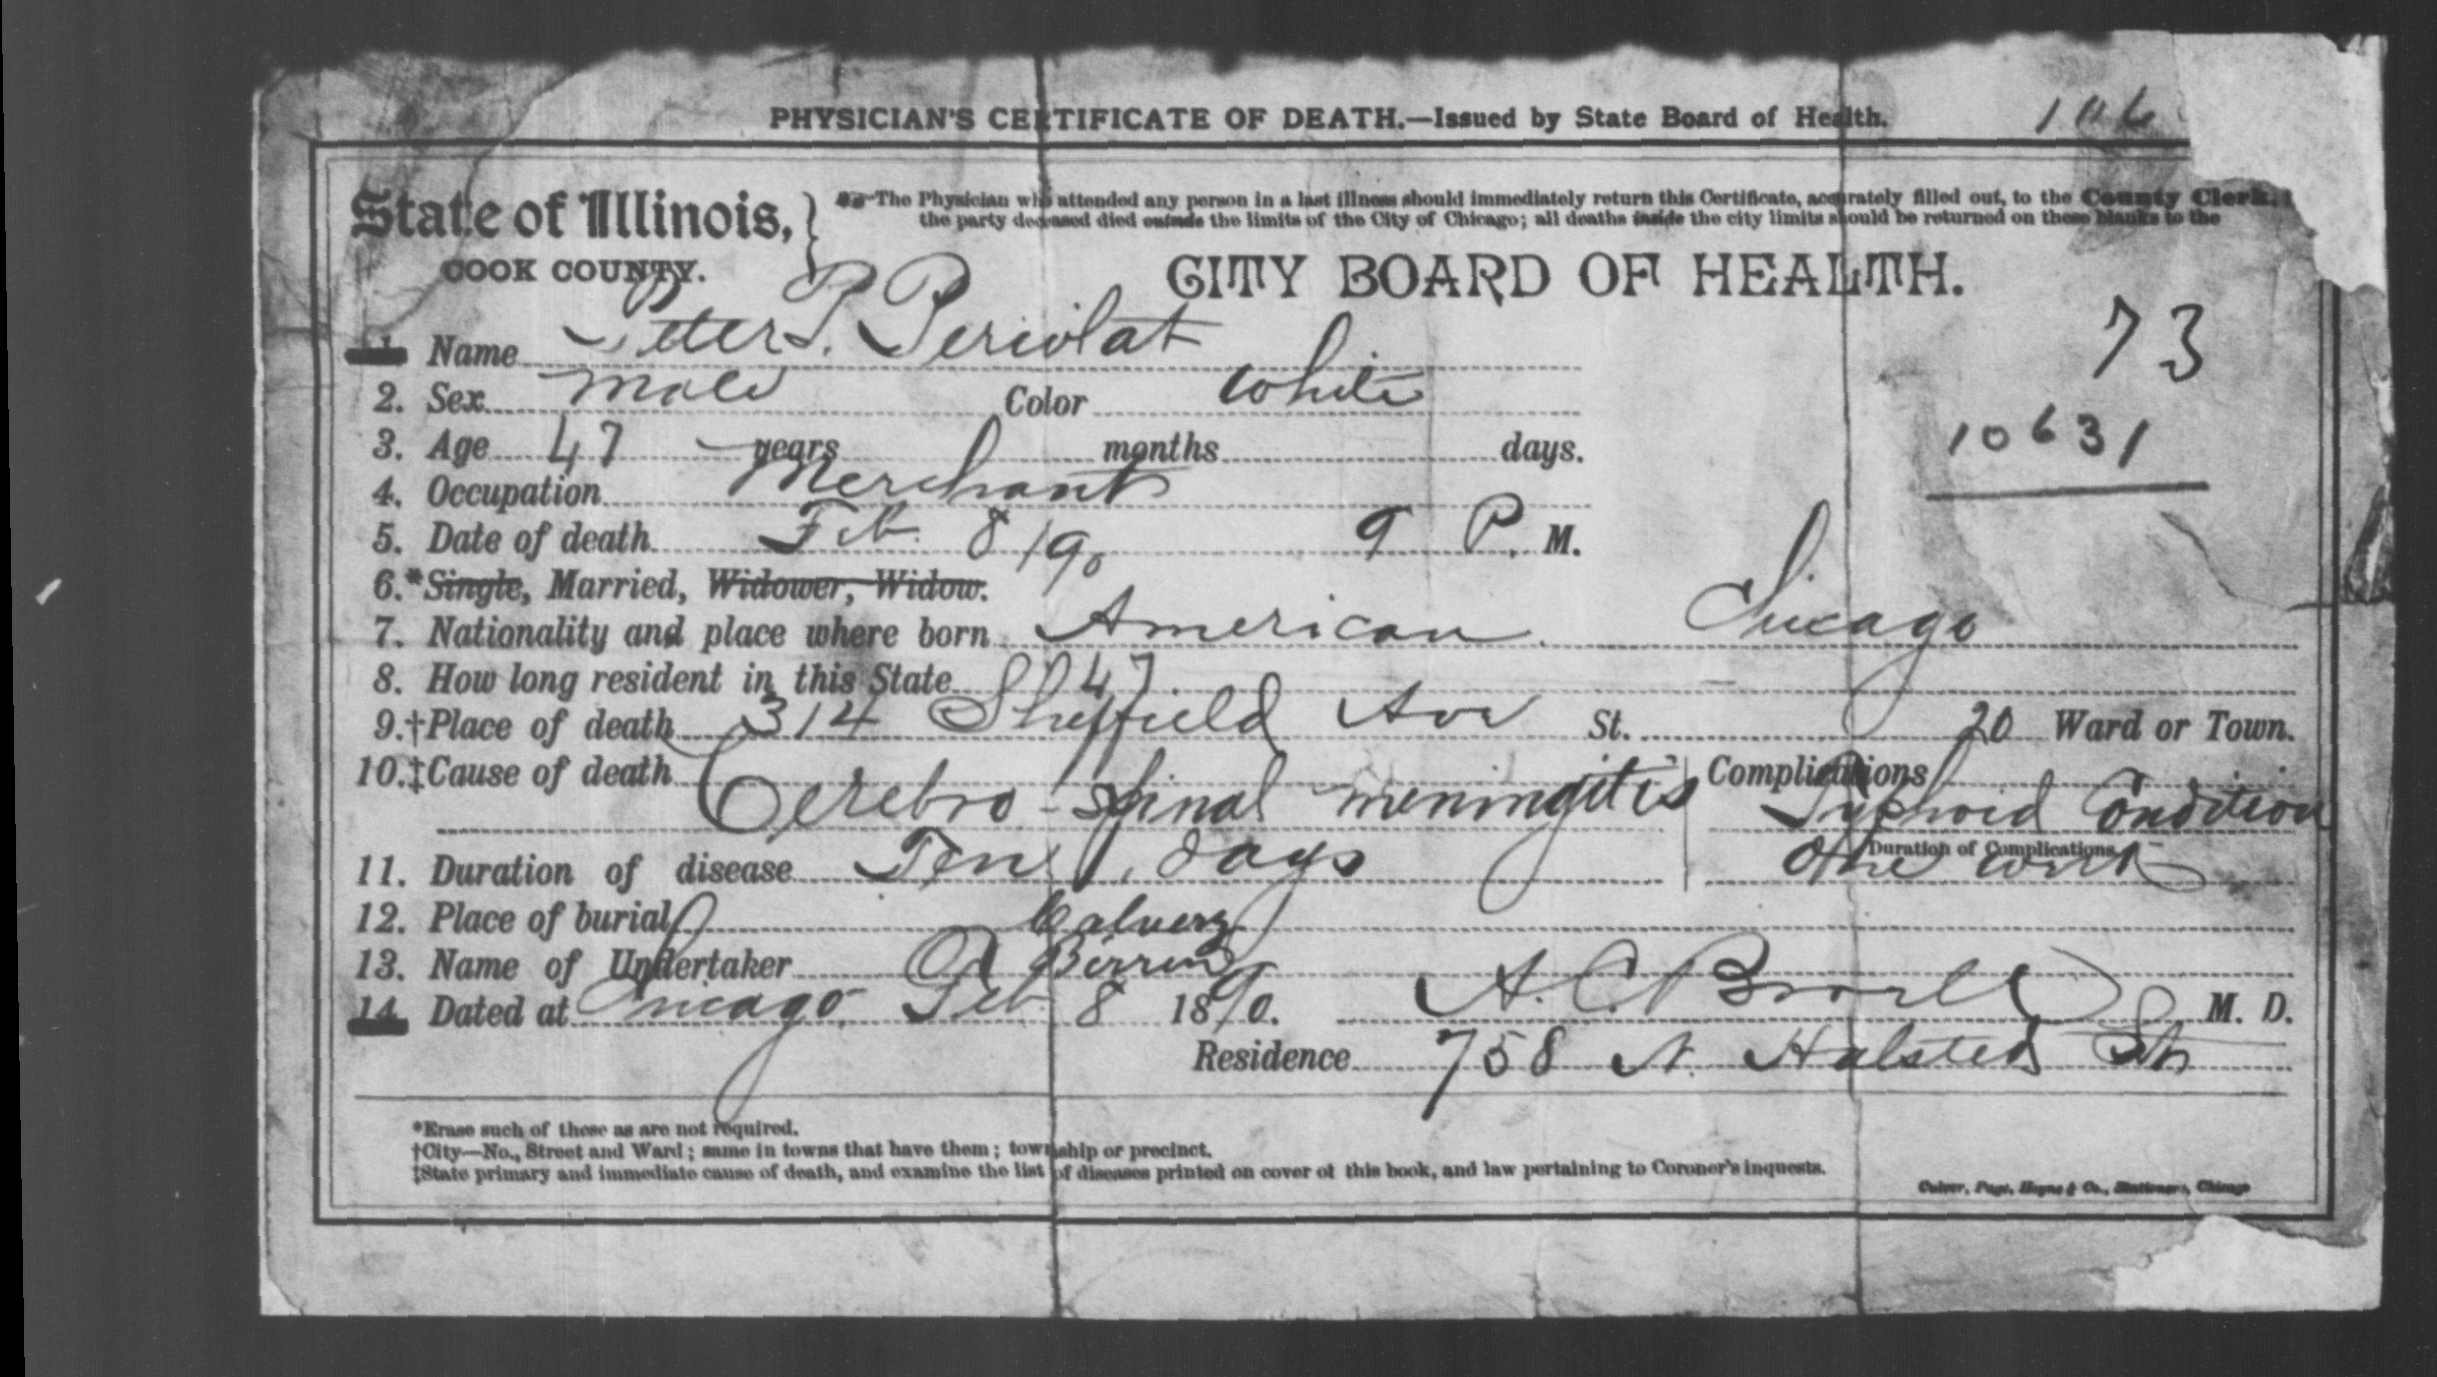 PHYSICIAN'S CERTIFICATE OF DEATH.—Issued by State Board of Health.
State of Illinois,
COOK COUNTY.
The Physician who attended any person in a last illness should immediately return this Certificate, accurately filled out, to the County Clerk,
the party deceased died outside the limits of the City of Chicago; all deaths inside the city limits should be returned on these blanks to the
CITY BOARD OF HEALTH.
73
10631
1. Name Peter P. Periolat
2. Sex Male Color White
3. Age 47 years months days.
4. Occupation Merchant
5. Date of death Feb. 8/90 9 P. M.
6.*Single, Married, Widower, Widow.
7. Nationality and place where born American. Chicago
8. How long resident in this State 47
9.†Place of death 314 Sheffield Ave St. 20 Ward or Town.
10.‡Cause of death Cerebro-spinal meningitis Complications Typhoid Condition
11. Duration of disease Ten days Duration of Complications One week
12. Place of burial Calvery
13. Name of Undertaker
14. Dated at Chicago, Feb 8 1890. A. C. M. D.
Residence 758 N. Halsted St
*Erase such of these as are not required.
†City—No., Street and Ward; same in towns that have them; township or precinct.
‡State primary and immediate cause of death, and examine the list of diseases printed on cover of this book, and law pertaining to Coroner's inquests.
Culver, Page, Hoyne & Co., Stationers, Chicago